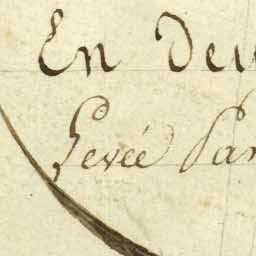 En Deu
Levée Par